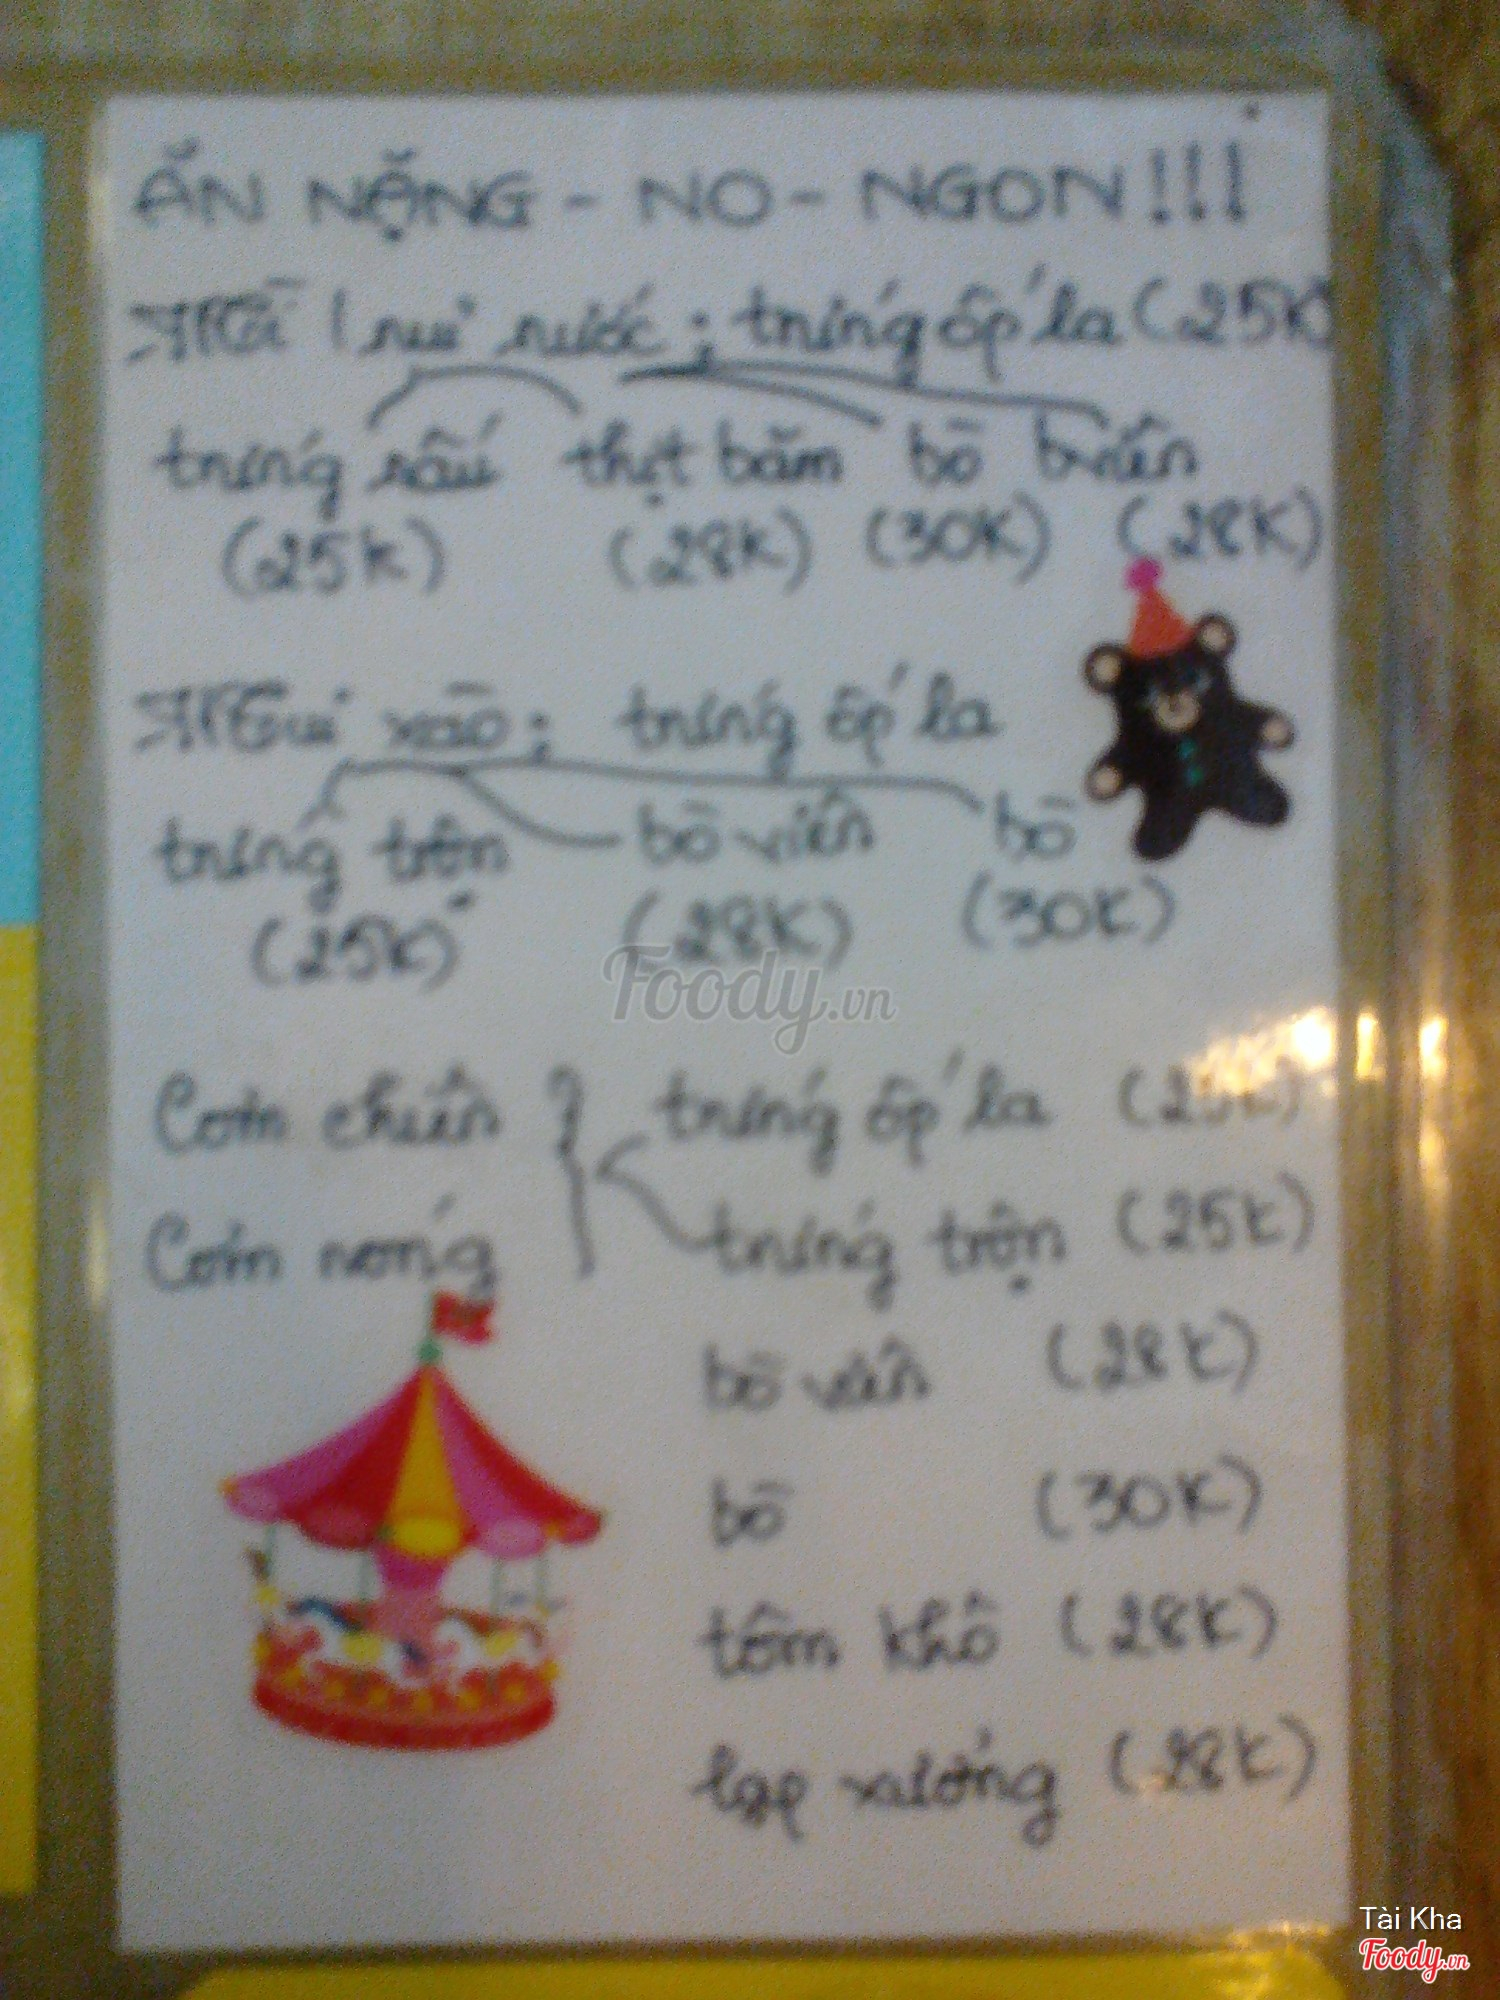 ĂN NẶNG - NO - NGON!!!
Mì / nui nước: trứng ốp la (25K)
trứng rấu thịt băm bò bviên
(25K) (28K) (30K) (28K)
Nui xào: trứng ốp la
trứng trộn bò viên bò
(25K) (28K) (30K)
Foody.vn
Cơm chiên trứng ốp la (25K)
Cơm nóng trứng trộn (25K)
bò viên (28K)
bò (30K)
tôm khô (28K)
lạp xưởng (28K)
Tài Kha
Foody.vn